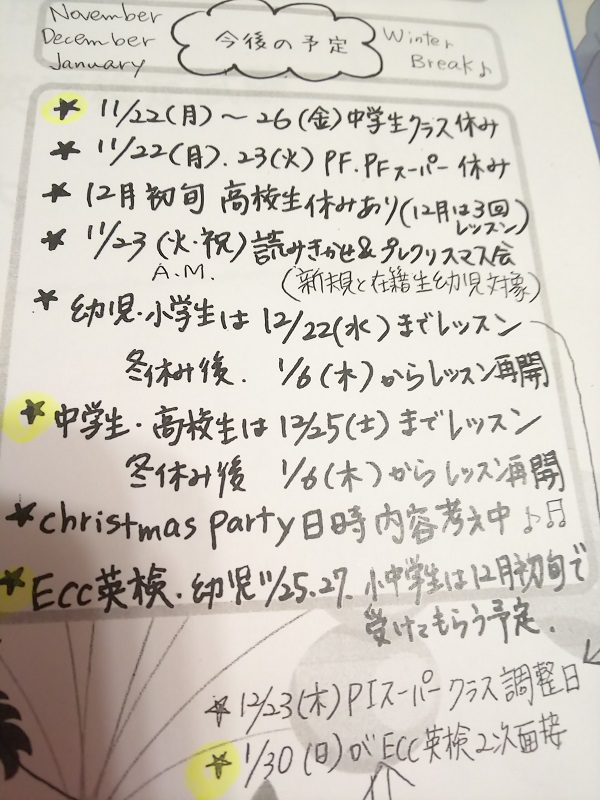 November
December
January
今後の予定
Winter
Break♪
★ 11/22(月)～26(金)中学生クラス休み
★ 11/22(月).23(火) PF.PFスーパー休み
★ 12月初旬 高校生休みあり(12月は3回
レッスン)
★ 11/23(火・祝)読みきかせ&プレクリスマス会
A.M.
(新規と在籍生幼児対象)
★ 幼児・小学生は12/22(水)までレッスン
冬休み後. 1/6(木)からレッスン再開
★ 中学生・高校生は12/25(土)までレッスン
冬休み後 1/6(木)からレッスン再開
★ christmas party日時内容考え中♪♫
★ ECC英検.幼児11/25.27. 小中学生は12月初旬で
受けてもらう予定.
★ 12/23(木)PIスーパークラス調整日
★ 1/30(日)がECC英検2次面接